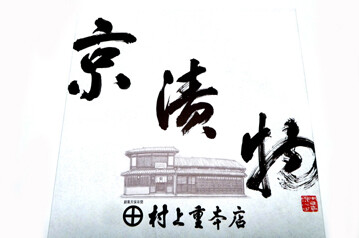 京漬物
村上重本店